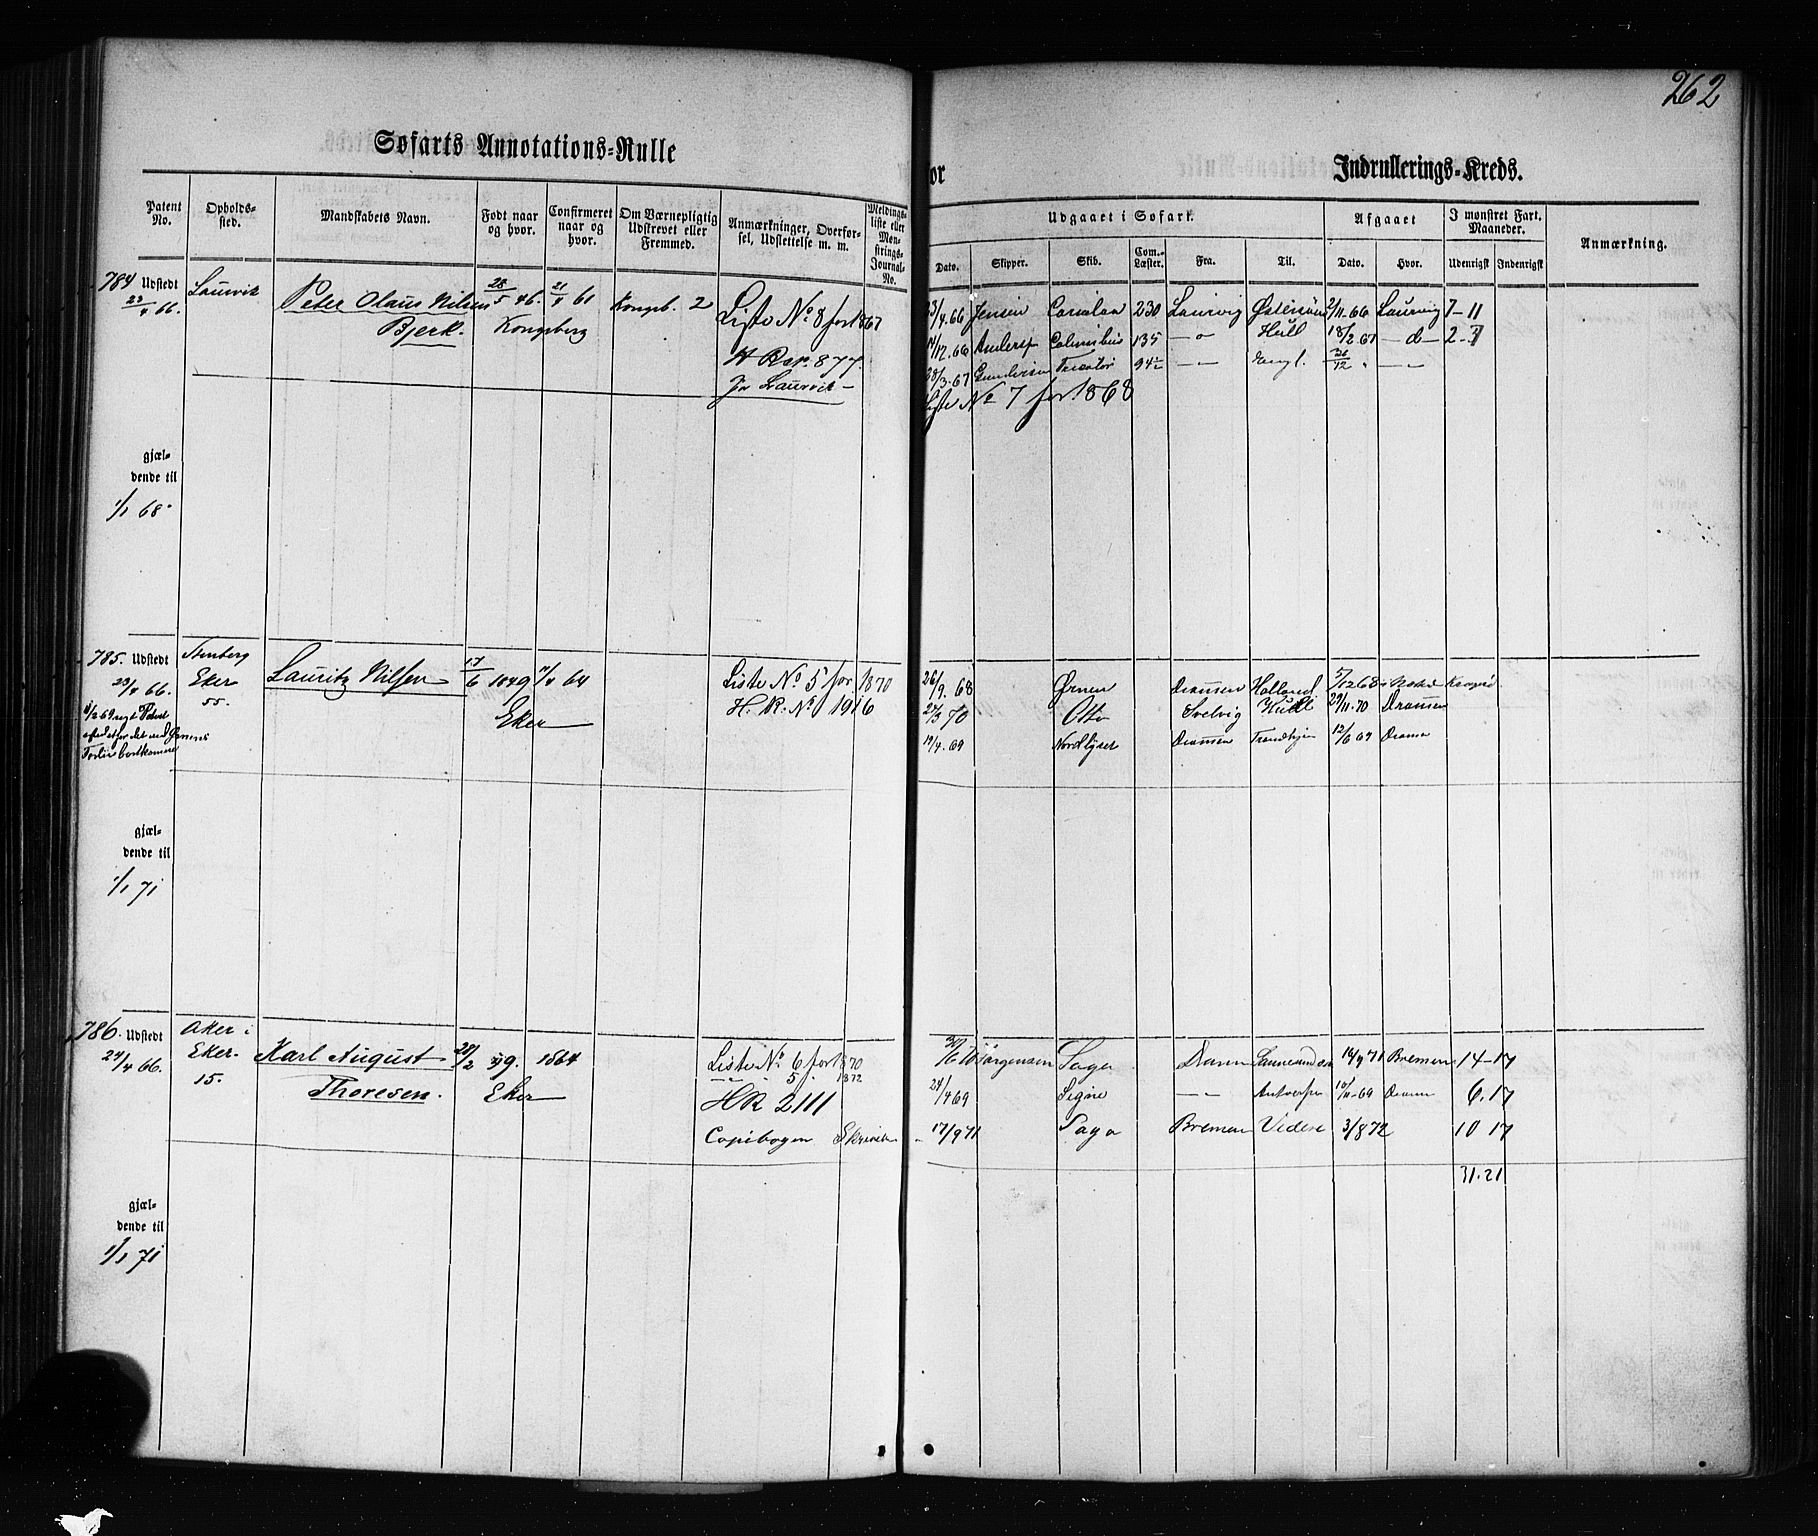 262
Søfarts Annotations-Rulle
for
Indrullerings-Kreds.
Patent No.
Opholds-sted.
Mandskabets Navn.
Født naar og hvor.
Confirmeret naar og hvor.
Om Værnepligtig Udskrevet eller Fremmed.
Anmærkninger, Overfor-sel, Udslettelse m. m.
Meldings-liste eller Møn-strings-Journal-No.
Udgaaet i Søfart.
Afgaaet
I mønstret Fart. Maaneder.
Anmærkning.
Dato.
Skipper.
Skib.
Com.-Læster.
Fra.
Til.
Dato.
Hvor.
Udenrigst
Indenrigst
784 Udstedt
23/4 66.
Laurvik
Peter Olaus Nilsen
Bjerk.
28/5 46.
Kongsberg
21/4 61
Kongsb. 2
Liste No 8 for 1867
H R sp. 877.
Jr Laurvik
23/4.66 Jensen 230 Laurvig 2/11-66 Laurvig 7-11
17/12.66 Columbus 135 — " Hull 18/2.67 — d — 2-
28/3.67 94½ — " — Engl. — " —
Liste No 7 for 1868
gjæl-
dende til
1/1 68.
785. Udstedt
23/4 66.
Stenberg
Eker
55.
Lauritz Nilsen
17/6 1849
Eker
64
Liste No 5 for 1870
H. R. No 1916
26/9. 68 Ørnen Dramen Holland 5/12 68
70 Otto Svelvig Hull 29/11.70 Dramen
19/4. 69 Nordlyset Dramen Trondhjem 12/6 69 Dramen
gjæl-
dende til
1/1 71
786. Udstedt
24/4 66.
Aker i
Eker.
15.
Karl August
Thoresen.
28/2 49.
Eker
1864
Liste No 6 for 1870
5 1872
HR 2111
Copibogen
Jørgensen Saga Dram 71 Bremen 14-17
24/4 69 Signe — " — Antwerpen 10/11-69 Dramen 6.17
17/9 71 Saga Bremen 3/8 72 10 17
31.21
gjæl-
dende til
1/1 71